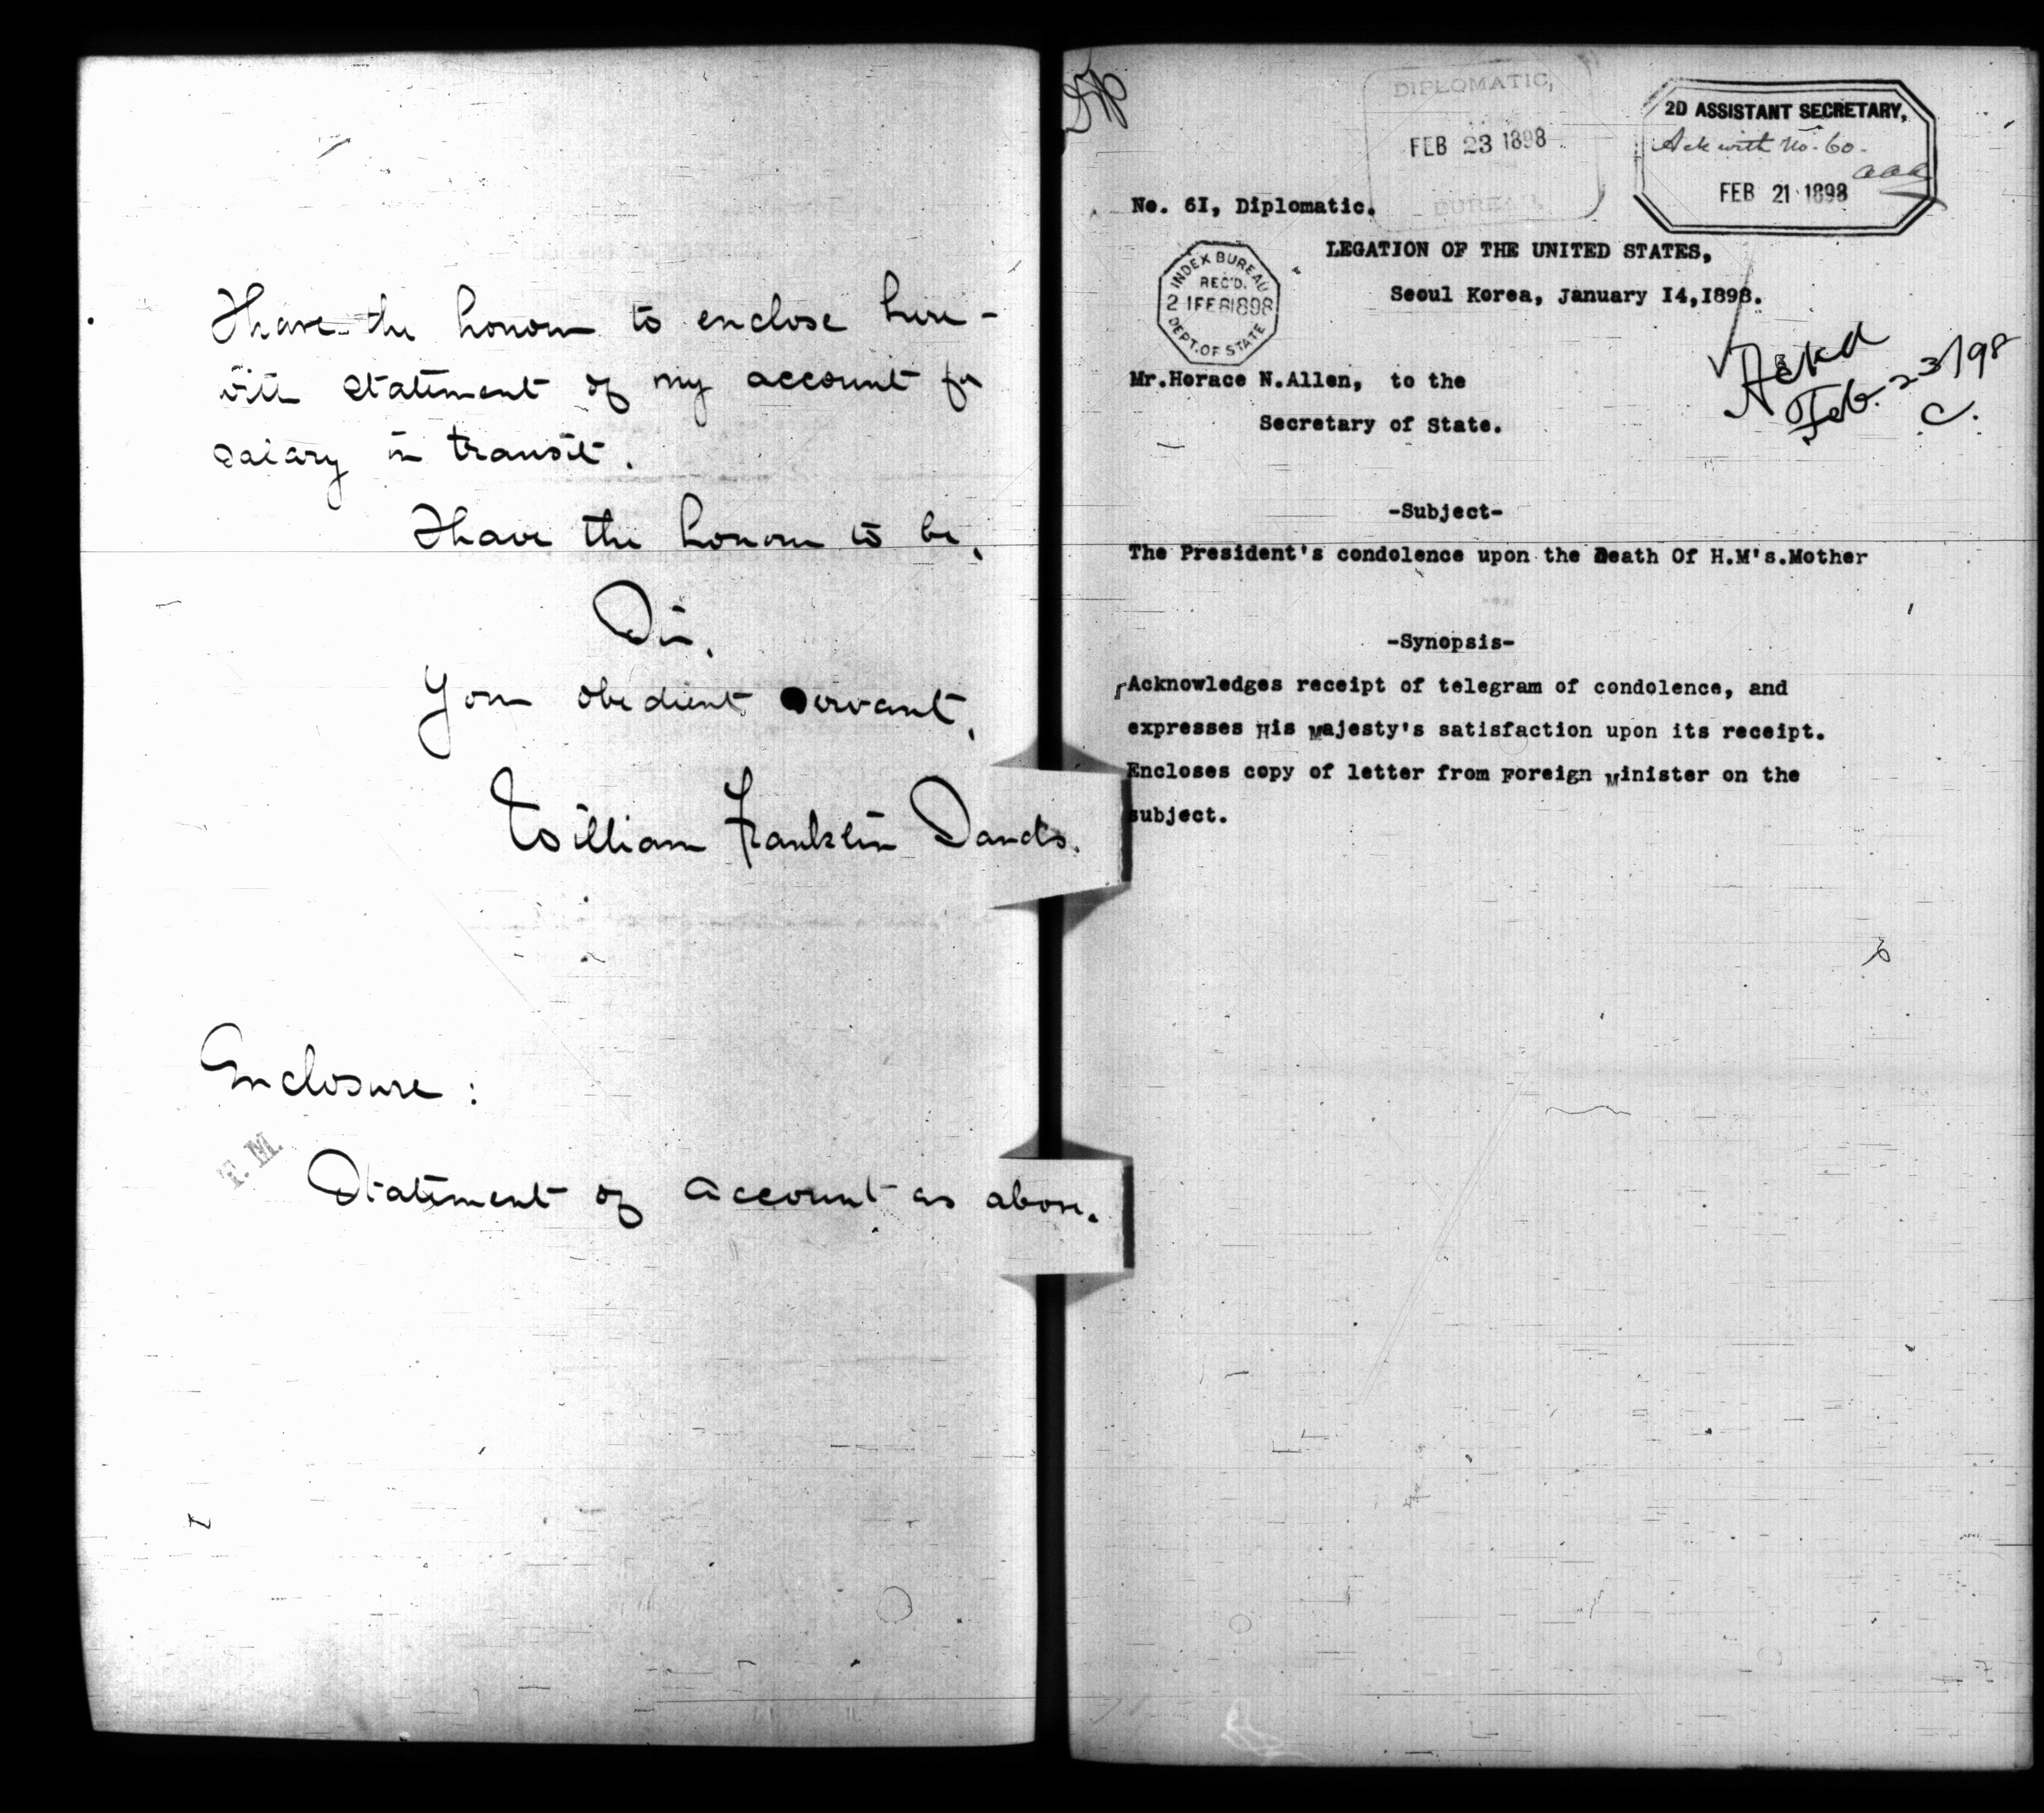 I have the honour to enclose here-
with statement of my account for
salary in transit.
I have the honour to be,
Sir,
Your obedient servant,
William Franklin Sands.
Enclosure:
T. M.
Statement of account as above.
DIPLOMATIC,
FEB 23 1898
BUREAU,
2D ASSISTANT SECRETARY,
Ack with No. 60.
aaa
FEB 21 1898
No. 6I, Diplomatic.
LEGATION OF THE UNITED STATES,
Seoul Korea, January I4,I898.
INDEX BUREAU
REC'D.
21FEB1898
DEPT. OF STATE
Ackd
Feb. 23/98
C.
Mr.Horace N.Allen, to the
Secretary of State.
-Subject-
The President's condolence upon the Death Of H.M's.Mother
-Synopsis-
Acknowledges receipt of telegram of condolence, and
expresses His Majesty's satisfaction upon its receipt.
Encloses copy of letter from Foreign Minister on the
subject.